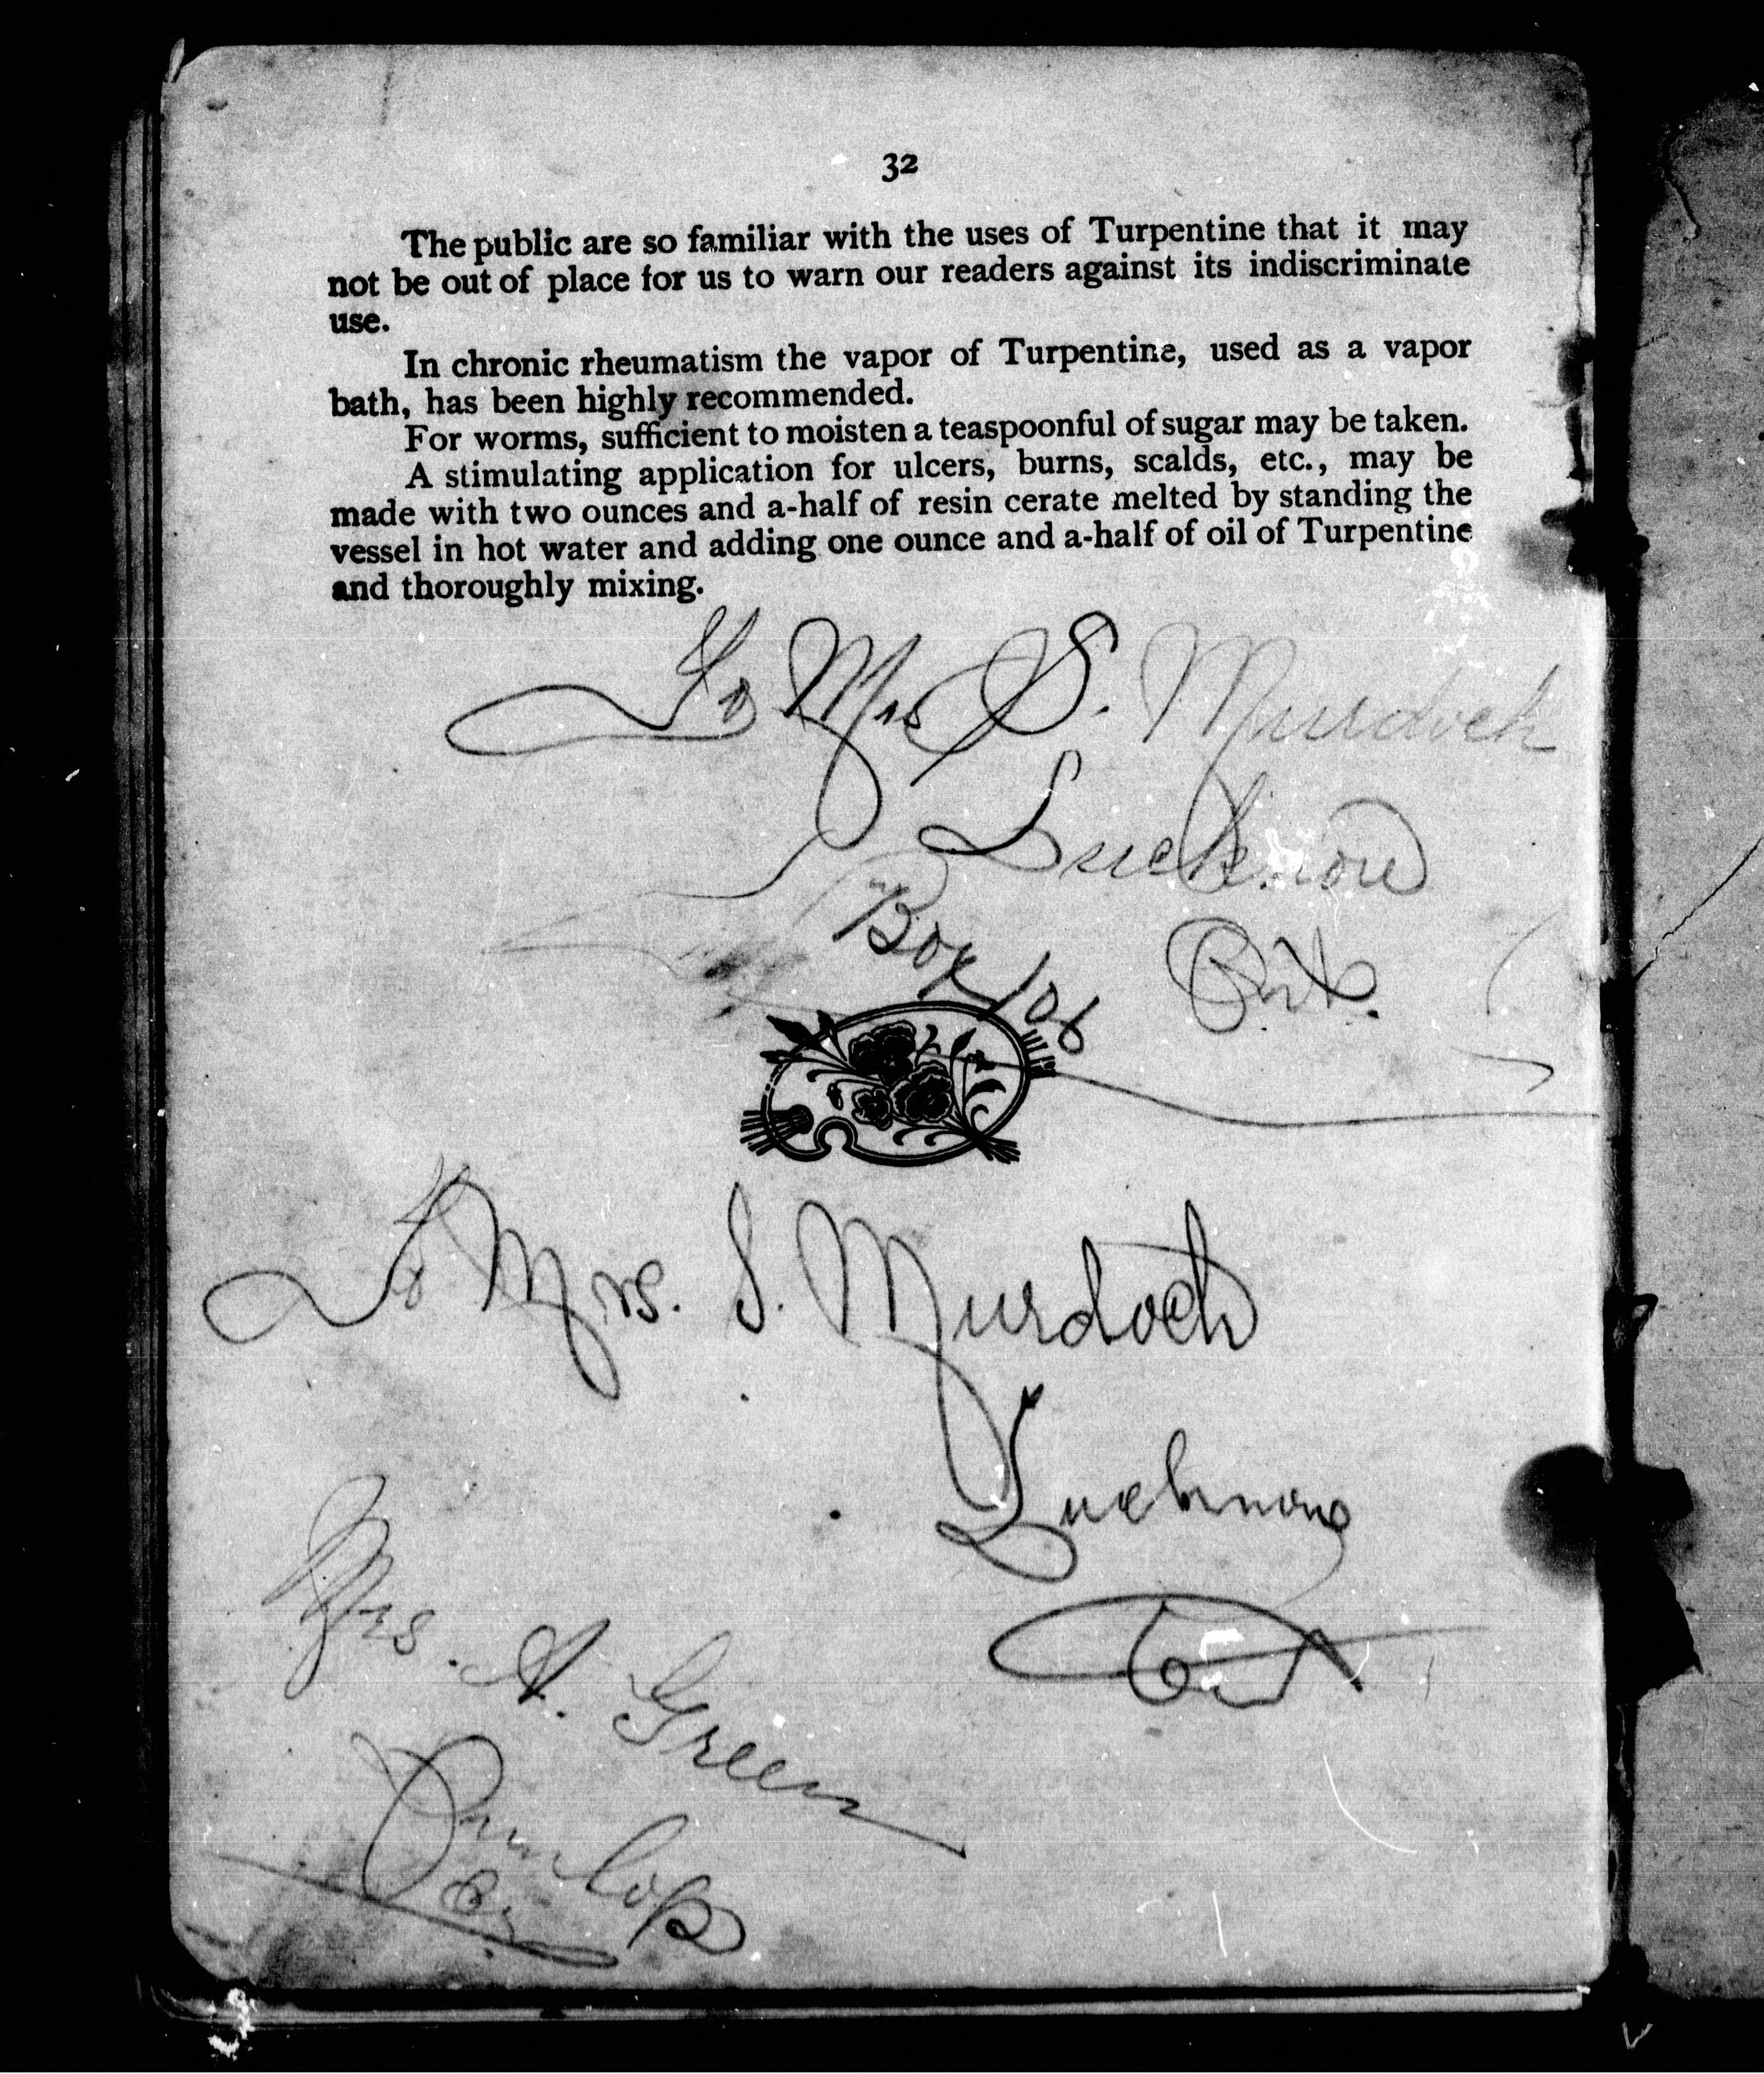 32
The public are so familiar with the uses of Turpentine that it may
not be out of place for us to warn our readers against its indiscriminate
use.
In chronic rheumatism the vapor of Turpentine, used as a vapor
bath, has been highly recommended.
For worms, sufficient to moisten a teaspoonful of sugar may be taken.
A stimulating application for ulcers, burns, scalds, etc., may be
made with two ounces and a-half of resin cerate melted by standing the
vessel in hot water and adding one ounce and a-half of oil of Turpentine
and thoroughly mixing.
To Mrs S. Murdoch
Lucknow
Box 106
Ont.
To Mrs. S. Murdoch
Lucknow
Ont
Mrs. A. Green
Dunlop